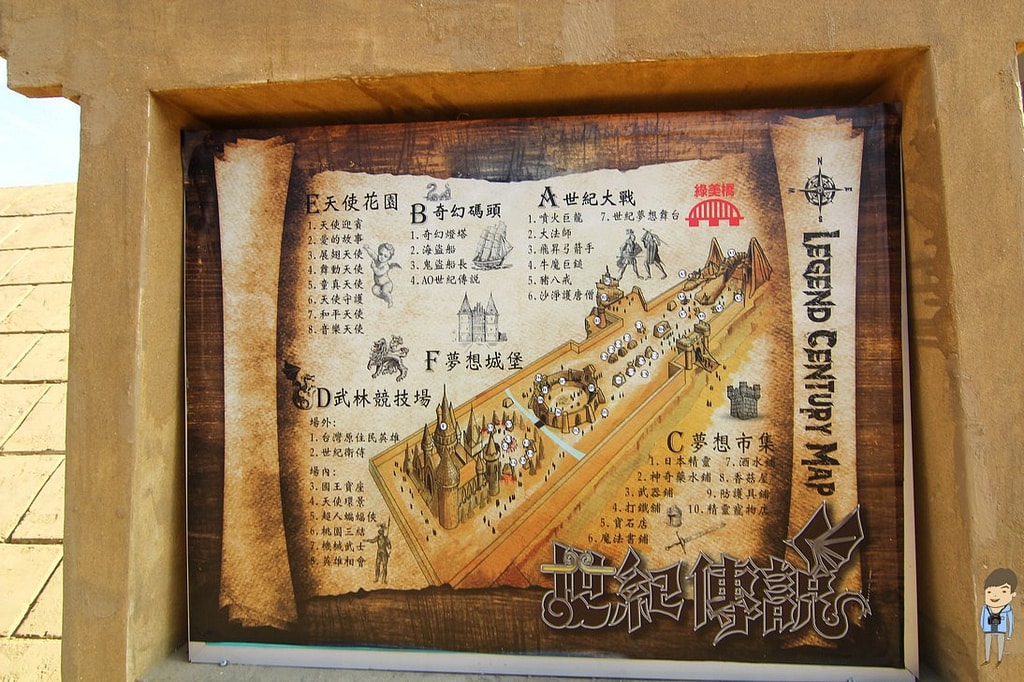 E天使花園
1.天使迎賓
2.愛的故事
3.展翅天使
4.舞動天使
5.童真天使
6.天使守護
7.和平天使
8.音樂天使
B奇幻碼頭
1.奇幻燈塔
2.海盜船
3.鬼盜船長
4.AO世紀傳說
A世紀大戰
1.噴火巨龍 7.世紀夢想舞台
2.大法師
3.飛昇弓箭手
4.牛魔巨鎚
5.豬八戒
6.沙淨護唐僧
綠美橋
N
F夢想城堡
D武林競技場
場外:
1.台灣原住民英雄
2.世紀衛傳
場內:
3.國王寶座
4.天使環景
5.超人蝙蝠俠
6.桃園三結
7.機械武士
8.英雄相會
C夢想市集
1.日本精靈 7.酒水舖
2.神奇藥水舖 8.香菇屋
3.武器舖 9.防護具舖
4.打鐵舖 10.精靈寵物店
5.寶石店
6.魔法書舖
LEGEND CENTURY MAP
世紀傳說